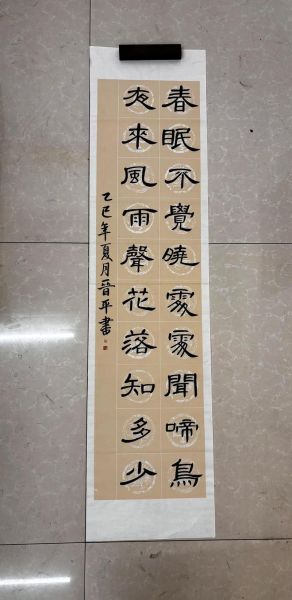 春眠不覺曉處處聞啼鳥
夜來風雨聲花落知多少
乙巳年夏月晉平書